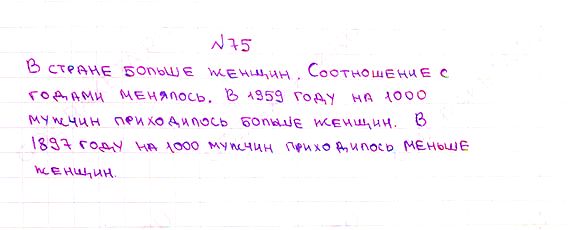 №75
В СТРАНЕ БОЛЬШЕ ЖЕНЩИН. СООТНОШЕНИЕ С
ГОДАМИ МЕНЯЛОСЬ. В 1959 ГОДУ НА 1000
МУЖЧИН ПРИХОДИЛОСЬ БОЛЬШЕ ЖЕНЩИН. В
1897 ГОДУ НА 1000 МУЖЧИН ПРИХОДИЛОСЬ МЕНЬШЕ
ЖЕНЩИН.